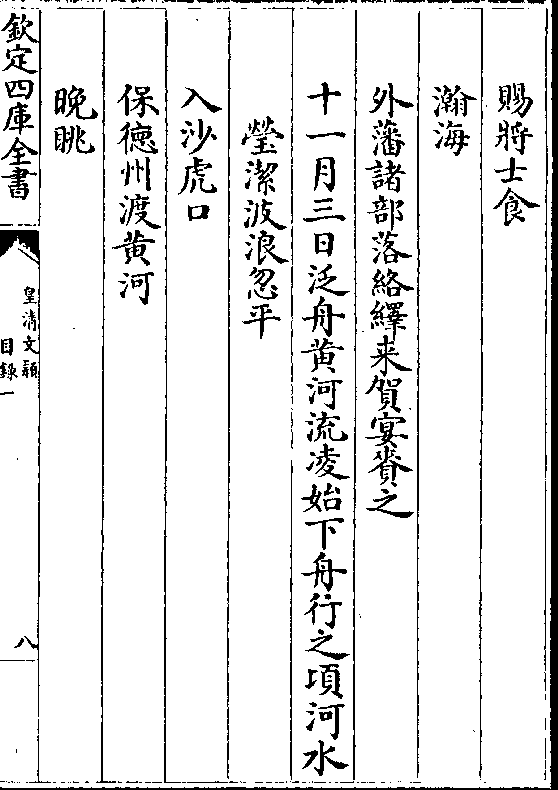 賜將士食
瀚海
外藩諸部落絡繹来賀宴賚之
十一月三日泛舟黄河流凌始下舟行之頃河水
瑩潔波浪忽平
入沙虎口
保德州渡黄河
晚眺
欽定四庫全書
皇清文穎
目錄一
八